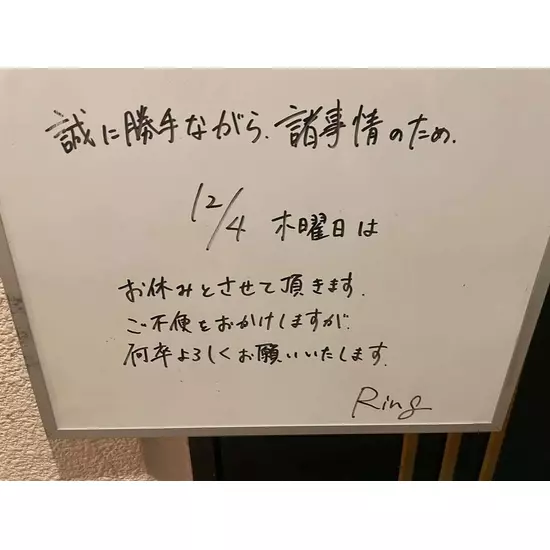 誠に勝手ながら、諸事情のため、
12/4 木曜日は
お休みとさせて頂きます。
ご不便をおかけしますが、
何卒よろしくお願いいたします。
Ring